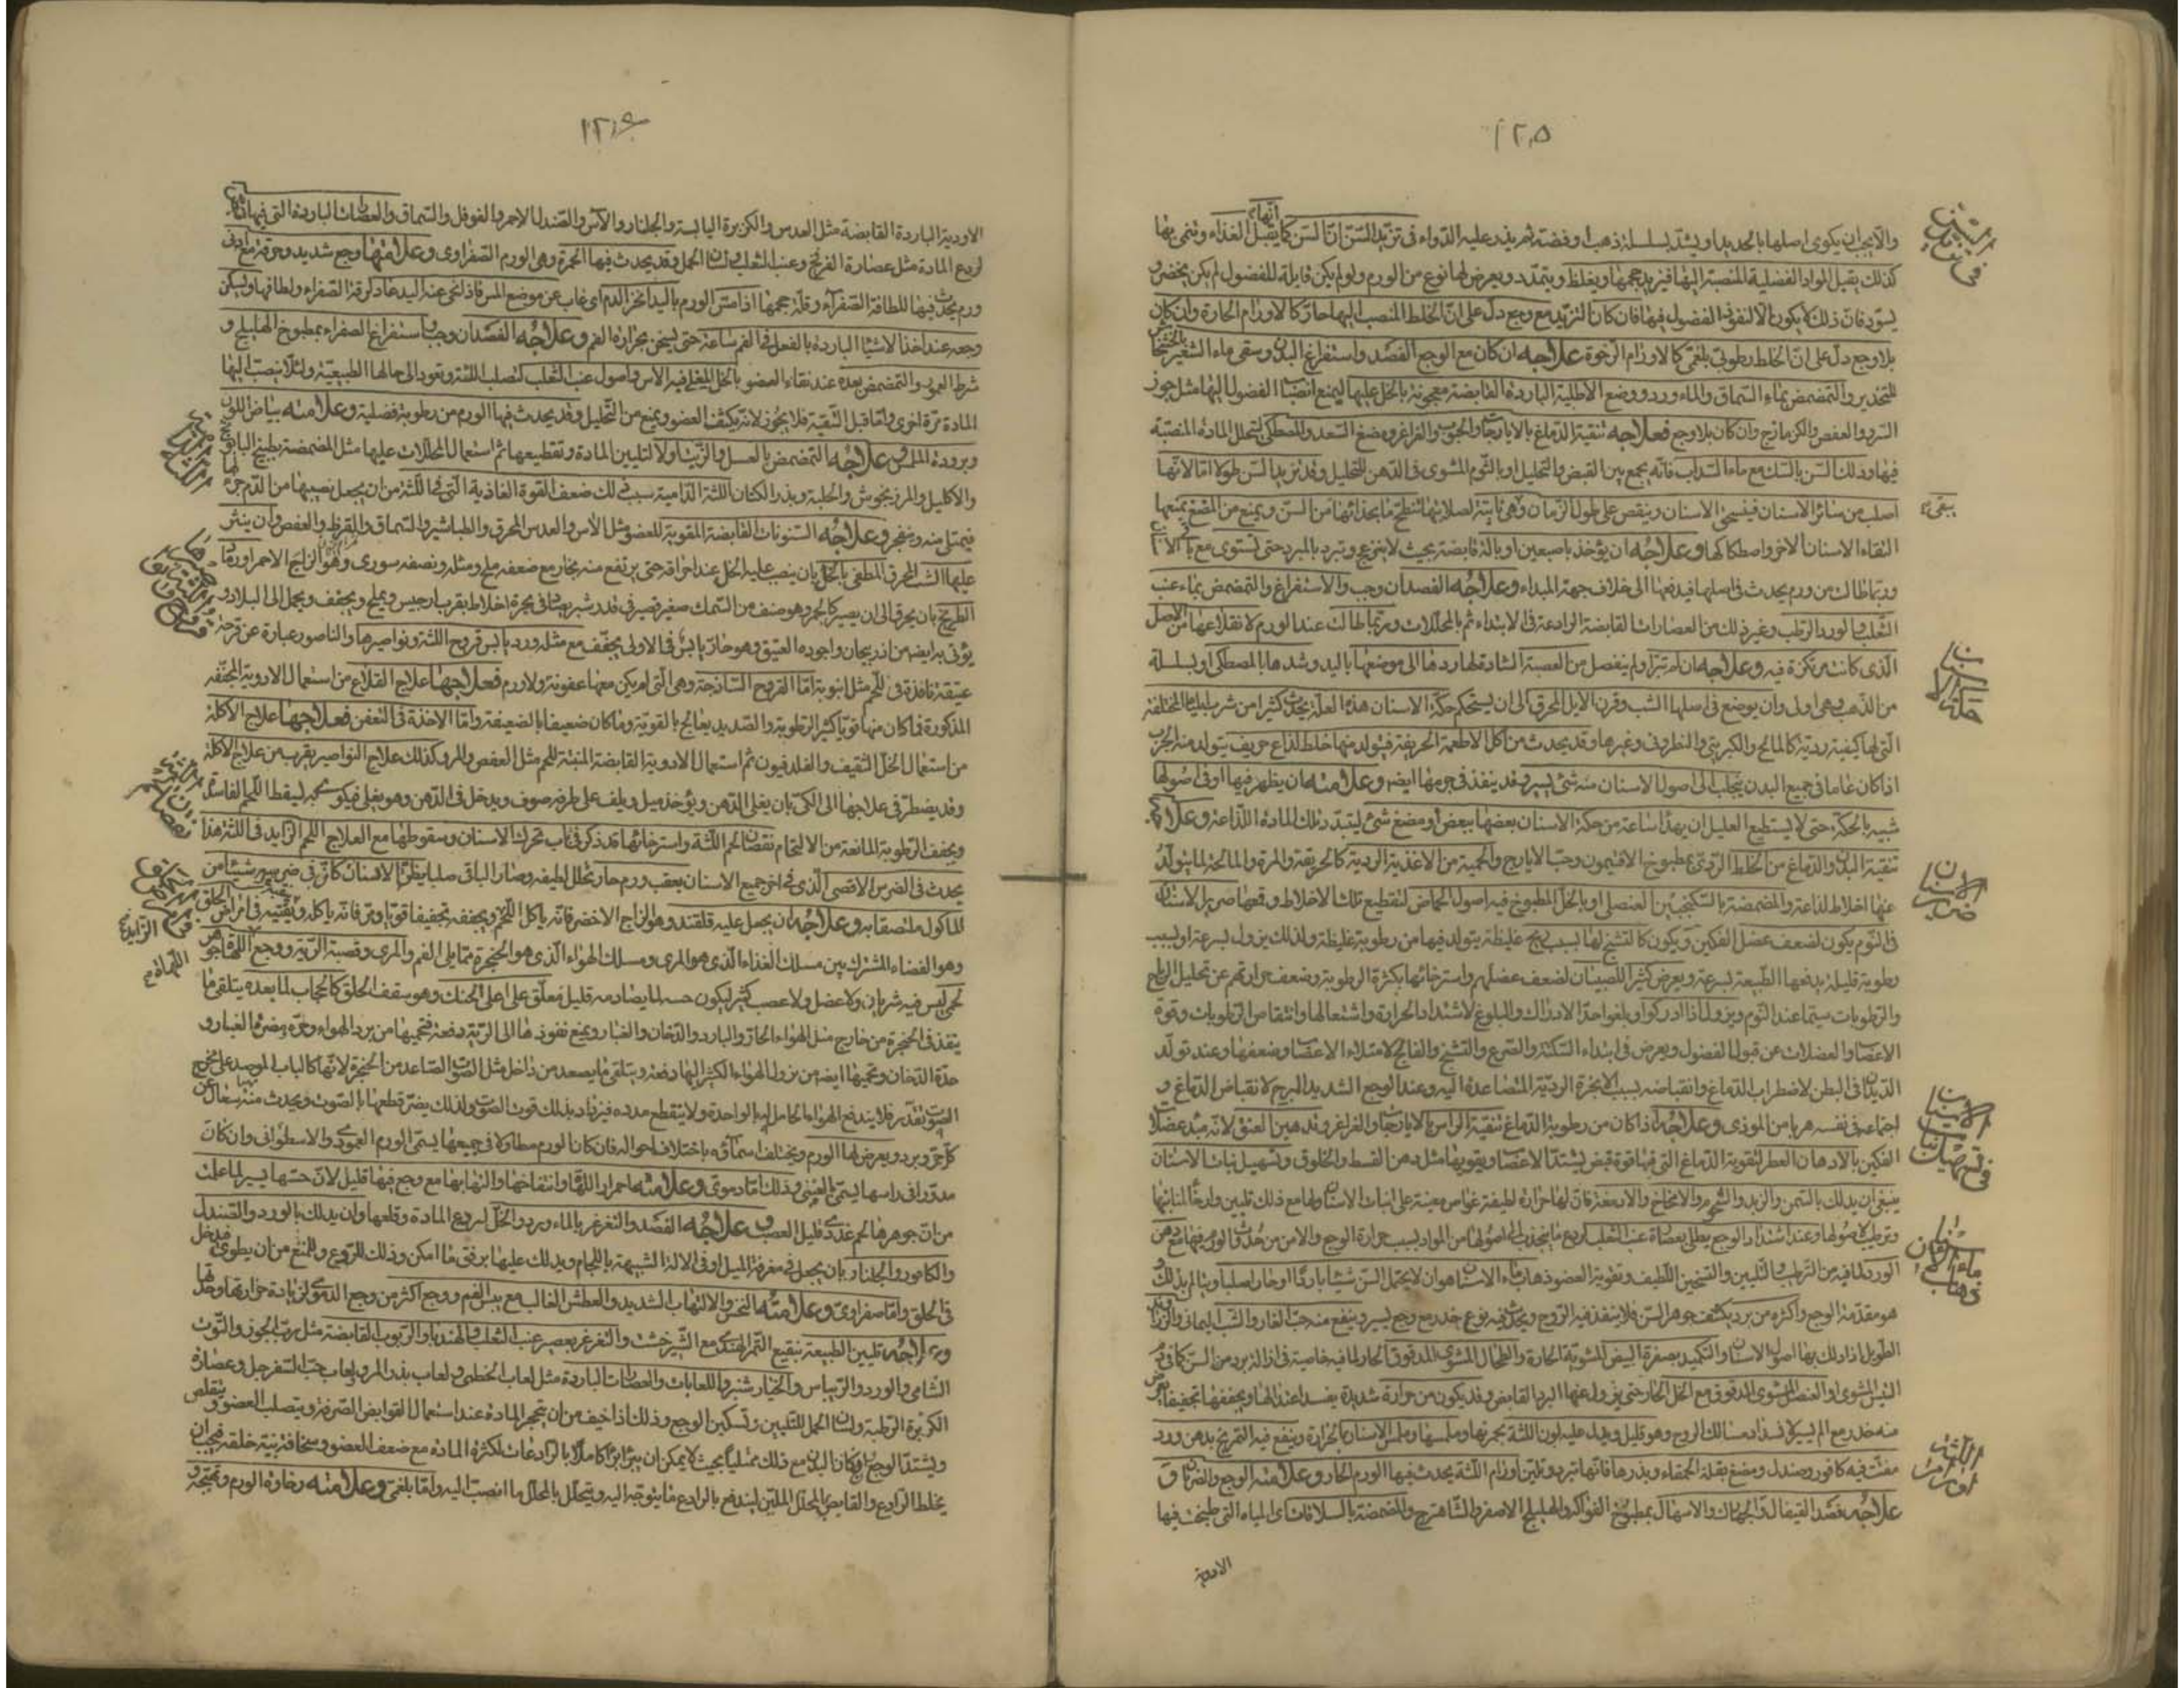 ١٢٥
والا يجب ان يكوى اصلها بالحديد او يشد بسلسلة ذهب او فضة ثم يذر عليه الدواء فى تزيد السن ان السن كما انها تقبل الغذاء وتنمى بها
كذلك يقبل المواد الفضلية المنصبة اليها فيزيد حجمها ويغلظ ويتمدد ويعرض لها نوع من الورم ولو لم يكن قابلة للفضول لم يكن يخضر و
يسود فان ذلك لا يكون الا لنفوذ الفضول فيها فان كان التزيد مع وجع دل على ان الخلط المنصب اليها حار كالاورام الحارة وان كان
بلا وجع دل على ان الخلط رطوبى بلغمى كالاورام الرخوة علاجه ان كان مع الوجع الفصد واستفراغ البدن وسقى ماء الشعير
للتخدير والتمضمض بماء السماق والماء ورد ووضع الاطلية الباردة القابضة معجونة بالخل عليها ليمنع انصباب الفضول اليها مثل جوز
السرو والعفص والكزمازج وان كان بلا وجع فعلاجه تنقية الدماغ بالايارجات والحبوب والغراغر ومضغ السعد والمصطكى لتحلل المادة المنصبة
فيها ودلك السن بالسك مع ماء السداب فانه يجمع بين القبض والتحليل او بالثوم المشوى فى الدهن للتحليل وقد يزيد السن طولا اما لانها
اصلب من سائر الاسنان فينسحق الاسنان وينقص على طول الزمان وهى ثابتة لصلابتها
التقاء الاسنان الاخر واصطكاكها وعلاجه ان يؤخذ باصبعين او بآلة قابضة بحيث لا ينزعج وتبرد بالمبرد حتى تستوى مع باقى الاسنان
وربما طالت من ورم يحدث فى اصلها فيدفعها الى خلاف جهة المبداء وعلاجه الفصد ان وجب والاستفراغ والتمضمض بماء عنب
الثعلب والورد الرطب وغير ذلك من العصارات القابضة الرادعة فى الابتداء ثم بالمحللات وربما طالت عند الورم لانقلاعها من الاصل
الذى كانت مرتكزة فيه وعلاجه ان لم تبرأ ولم ينفصل من العصبة الشادة لها ردها الى موضعها باليد وشدها بالمصطكى او بسلسلة
من الذهب وهى اولى وان يوضع فى اصلها الشب وقرن الايل المحرق الى ان يستحكم حكة الاسنان هذه العلة يحدث كثيرا من شرب المياه المختلفة
التى لها كيفية ردية كالمالح والكبريتى والنطرونى وغيرها وقد يحدث من اكل الاطعمة الحريفة فيتولد منها خلط لذاع حريف يتولد منه الجرب
اذا كان عاما فى جميع البدن يتحلب الى اصول الاسنان منه شئ يسير وقد ينفذ فى جرمها ايضا وعلامته ان يظهر فيها او فى اصولها
شبيه بالحكة حتى لا يستطيع العليل ان يهدأ ساعة من حكة الاسنان بعضها ببعض او مضغ شئ ليتبدد ذلك المادة اللذاعة وعلاجه
تنقية البدن والدماغ من الخلط الردى بمطبوخ الافتيمون وحب الايارج والحمية من الاغذية الردية كالحريفة والمرة والمالحة لما يتولد
عنها اخلاط لذاعة والمضمضة بالسكنجبين العنصلى او بالخل المطبوخ فيه اصول الحماض لتقطيع تلك الاخلاط وقمعها صرير الاسنان
فى النوم يكون لضعف عضل الفكين ويكون كالتشنج لها بسبب ريح غليظة يتولد فيها من رطوبة غليظة ولذلك يزول بسرعة او بسبب
رطوبة قليلة يدفعها الطبيعة بسرعة ويعرض كثيرا للصبيان لضعف عضلهم واسترخائها بكثرة الرطوبة وضعف حرارتهم عن تحليل الرياح
والرطوبات سيما عند النوم ويزول اذا ادركوا وبلغوا حد الادراك والبلوغ لاشتداد الحرارة واشتعالها وانتقاص الرطوبات وقوة
الاعضاء والعضلات عن قبول الفضول ويعرض فى ابتداء السكتة والصرع والتشنج والفالج لامتلاء الاعضاء وضعفها وعند تولد
الديدان فى البطن لاضطراب الدماغ وانقباضه بسبب الابخرة الردية المتصاعدة اليه وعند الوجع الشديد المبرح لانقباض الدماغ و
اجتماعه فى نفسه هربا من الموذى وعلاجه اذا كان من رطوبة الدماغ تنقية الراس بالايارجات والغراغر وتدهين العنق لانه مبدء عضلات
الفكين بالادهان العطرة لتقوية الدماغ التى فيها قوة قبض ليشتد الاعضاء ويقويها مثل دهن القسط والخلوق وتسهيل نبات الاسنان
ينبغى ان يدلك بالسمن والزبد والشحوم والامخاخ والادمغة فان لها حرارة لطيفة غواصة معينة على انبات الاسنان ولها مع ذلك تليين وارخاء لمنابتها
وترطيب لاصولها وعند اشتداد الوجع يطلى بعصارة عنب الثعلب لردع ما ينجذب الى اصولها من المواد بسبب حرارة الوجع والامن من حدوث الورم فيها مع دهن
الورد لما فيه من الترطيب والتليين والتسخين اللطيف وتقوية العضو ذهاب ماء الاسنان هو ان لا يحتمل السن شيئا باردا او حارا او صلبا
هو مقدمة الوجع واكثره من برد يكثف جوهر السن فلا ينفذ فيه الروح ويحدث فيه نوع خدر مع وجع يسير وينفع منه حب الغار والشب اليمانى والزراوند
الطويل اذا دلك بها اصول الاسنان والتكميد بصفرة البيض المشوية الحارة والطحال المشوى المدقوق الحار لما فيه خاصية فى ازالة برد من السن كما فى
التين المشوى او العنصل المشوى المدقوق مع الخل الحار حتى يزول عنها البرد القابض وقد يكون من حرارة شديدة يفسد اعتدالها ويجففها تجفيفا
منه خدر مع الم يسير لانسداد مسالك الروح وهو قليل ويدل عليه لون اللثة بحمرتها وملمسها وملمس الاسنان بالحرارة وينفع فيه التمريخ بدهن ورد
مفتت فيه كافور وصندل ومضغ بقلة الحمقاء وبذرها فانها تبرد وتلين اورام اللثة يحدث فيها الورم الحار وعلامته الوجع والضربان
علاجه فصد القيفال والجهارك والاسهال بمطبوخ الفواكه والهليلج الاصفر والشاهترج والمضمضة بالسلاقات اى المياه التى طبخت فيها
الادوية
فى تزيد السن
حكة الاسنان
صرير الاسنان
ذهاب ماء الاسنان
اورام اللثة
١٢٦
الادوية الباردة القابضة مثل العدس والكزبرة اليابسة والجلنار والآس والصندل الاحمر والفوفل والسماق والعصارات الباردة التى فيها
لردع المادة مثل عصارة الفرفخ وعنب الثعلب ولسان الحمل وقد يحدث فيها الحمرة وهى الورم الصفراوى وعلامتها وجع شديد وحرقة مع ادنى
ورم يحدث فيها للطافة الصفراء وقلة حجمها اذا مس الورم باليد انحز الدم اى غاب عن موضع المس فاذا نحى عنه اليد عاد لرقة الصفراء ولطافتها ويسكن
وجعه عند اخذ الاشياء الباردة بالفعل فى الفم ساعة حتى يسخن بحرارة الفم وعلاجه الفصد ان وجب واستفراغ الصفراء بمطبوخ الهليلج و
شرط العمور والتمضمض بعده عند نقاء العضو بالخل المغلى فيه الآس واصول عنب الثعلب لتصلب اللثة وتعود الى حالها الطبيعية ولئلا ينصب اليها
المادة مرة اخرى واما قبل التنقية فلا يجوز لانه يكثف العضو ويمنع من التحليل وقد يحدث فيها الورم من رطوبة فضلية وعلامته بياض اللون
وبرودة الملمس وعلاجه التمضمض بالعسل والزيت اولا لتليين المادة وتقطيعها ثم استعمال المحللات عليها مثل المضمضة بطبيخ البابونج
والاكليل والمرزنجوش والحلبة وبذر الكتان اللثة الدامية سبب ذلك ضعف القوة الغاذية التى فى اللثة من ان يجعل نصيبها من الدم جزءا لها
فيمتلى منه وينفجر وعلاجه السنونات القابضة المقوية للعضو مثل الآس والعدس المحرق والطباشير والسماق والقرظ والعفص وان ينثر
عليها الشب المحرق المطفى بالخل بان ينصب عليه الخل عند احراقه حتى يرتفع منه بخار مع ضعفه ملح ومثله ونصفه سورى وهو الزاج الاحمر او رماد
الطريخ بان يحرق الى ان يصير كالجمر وهو صنف من السمك صغير قصير فى قدر شبر يصاد فى بحيرة اخلاط بقرب ارجيس ويملح ويجفف ويحمل الى البلاد و
يؤتى به ايضا من اذربيجان واجوده العتيق وهو حار يابس فى الاولى يجفف مع مثله ورد يابس قروح اللثة ونواصيرها والناصور عبارة عن قرحة
عتيقة نافذة فى اللحم مثل انبوبة اما القروح الساذجة وهى التى لم يكن معها عفونة ولا ورم فعلاجها علاج القلاع من استعمال الادوية المجففة
المذكورة فما كان منها قويا كثير الرطوبة والصديد يعالج بالقوية وما كان ضعيفا بالضعيفة واما الآخذة فى التعفن فعلاجها علاج الآكلة
من استعمال الخل الثقيف والفلدفيون ثم استعمال الادوية القابضة المنبتة للحم مثل العفص والمر وكذلك علاج النواصير يقرب من علاج الآكلة
وقد يضطر فى علاجها الى الكى بان يغلى الدهن ويؤخذ ميل ويلف على طرفه صوف ويدخل فى الدهن وهو يغلى فيكوى به ليسقط اللحم الفاسد
ويجفف الرطوبة المانعة من الالتحام نقصان لحم اللثة واسترخائها قد ذكر فى باب تحرك الاسنان وسقوطها مع العلاج اللحم الزايد فى اللثة هذا
يحدث فى الضرس الاقصى الذى فى اخر جميع الاسنان بعقب ورم حار تحلل لطيفه وصار الباقى صلبا
للماكول ملتصقا به وعلاجه ان يجعل عليه قلقند وهو الزاج الاخضر فانه ياكل اللحم ويجففه تجفيفا قويا فانه ياكله ويفنيه فى امراض الحلق
وهو الفضاء المشترك بين مسلك الغذاء الذى هو المرى ومسلك الهواء الذى هو الحنجرة مما يلى الفم والمرى وقصبة الرية ووجع اللهاة هى جوهر
لحمى ليس فيه شريان ولا عضل ولا عصب كثير ليكون حسه لما يصادمه قليل معلق على اعلى الحنك وهو سقف الحلق كالحجاب لما بعده يتلقى ما
ينفذ فى الحنجرة من خارج مثل الهواء الحار والبارد والدخان والغبار ويمنع نفوذها الى الرية دفعة فتحميها من برد الهواء وحره ومضرة الغبار و
حدة الدخان وتحميها ايضا من نزول الهواء الكثير اليها دفعة ويتلقى ما يصعد من داخل مثل الصوت الصاعد من الحنجرة لانها كالباب الموصد على مخرج
الصوت بقدر فلا يندفع الهواء الحامل له بالواحدة ولا ينقطع مدده فيزداد بذلك قوة الصوت ولذلك يضر قطعها بالصوت ويحدث منه سعال عن
كل حر وبرد ويعرض لها الورم ويختلف اسماؤه باختلاف احواله فان كان الورم مطاولا فى جميعها يسمى الورم العمودى والاسطوانى وان كان
مدورا فى راسها يسمى بالعنبى وذلك اما دموى وعلامته احمرار اللهاة وانتفاخها والتهابها مع وجع فيها قليل لان حسها يسير لما علمت
من ان جوهرها لحم غددى قليل العصب وعلاجه الفصد والتغرغر بالماء ورد والخل لردع المادة وقلعها وان يدلك بالورد والصندل
والكافور والجلنار بان يجعل فى مغرفة الميل او فى الآلة الشبيهة باللجام ويدلك عليها برفق ما امكن وذلك للردع والمنع من ان يطول فيدخل
فى الحلق واما صفراوى وعلامته النخس والالتهاب الشديد والعطش الغالب مع يبس الفم ووجع اكثر من وجع الدموى لزيادة حرارتها وحدتها
وعلاجه تليين الطبيعة بنقيع التمر الهندى مع الشيرخشت والتغرغر بعصير عنب الثعلب والهندبا والربوب القابضة مثل رب الجوز والتوث
الشامى والورد والريباس والخيار شنبر واللعابات والعصارات الباردة مثل لعاب الخطمى ولعاب بذر المرو ولعاب حب السفرجل وعصارة
الكزبرة الرطبة ولسان الحمل للتليين وتسكين الوجع وذلك اذا خيف من ان يتحجر المادة عند استعمال القوابض الصرفة ويتصلب العضو ويتقلص
ويشتد الوجع وكان البدن مع ذلك ممتليا بحيث لا يمكن ان يبرأ برأ كاملا بالرادعات لكثرة المادة مع ضعف العضو وسخافة بنية خلقه فيجب ان
يخلط الرادع والقابض بالمحلل الملين ليندفع بالرادع ما يتوجه اليه ويتحلل بالمحلل ما انصب اليه واما بلغمى وعلامته رخاوة الورم وتهبجه و